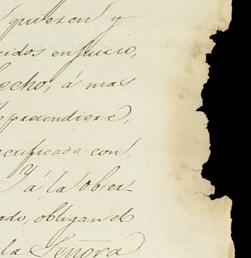 quieren y
cidos en juicio,
echo, á mas
pretendiere,
crificada con
Y á la obser-
ado, obligan el
la Señora